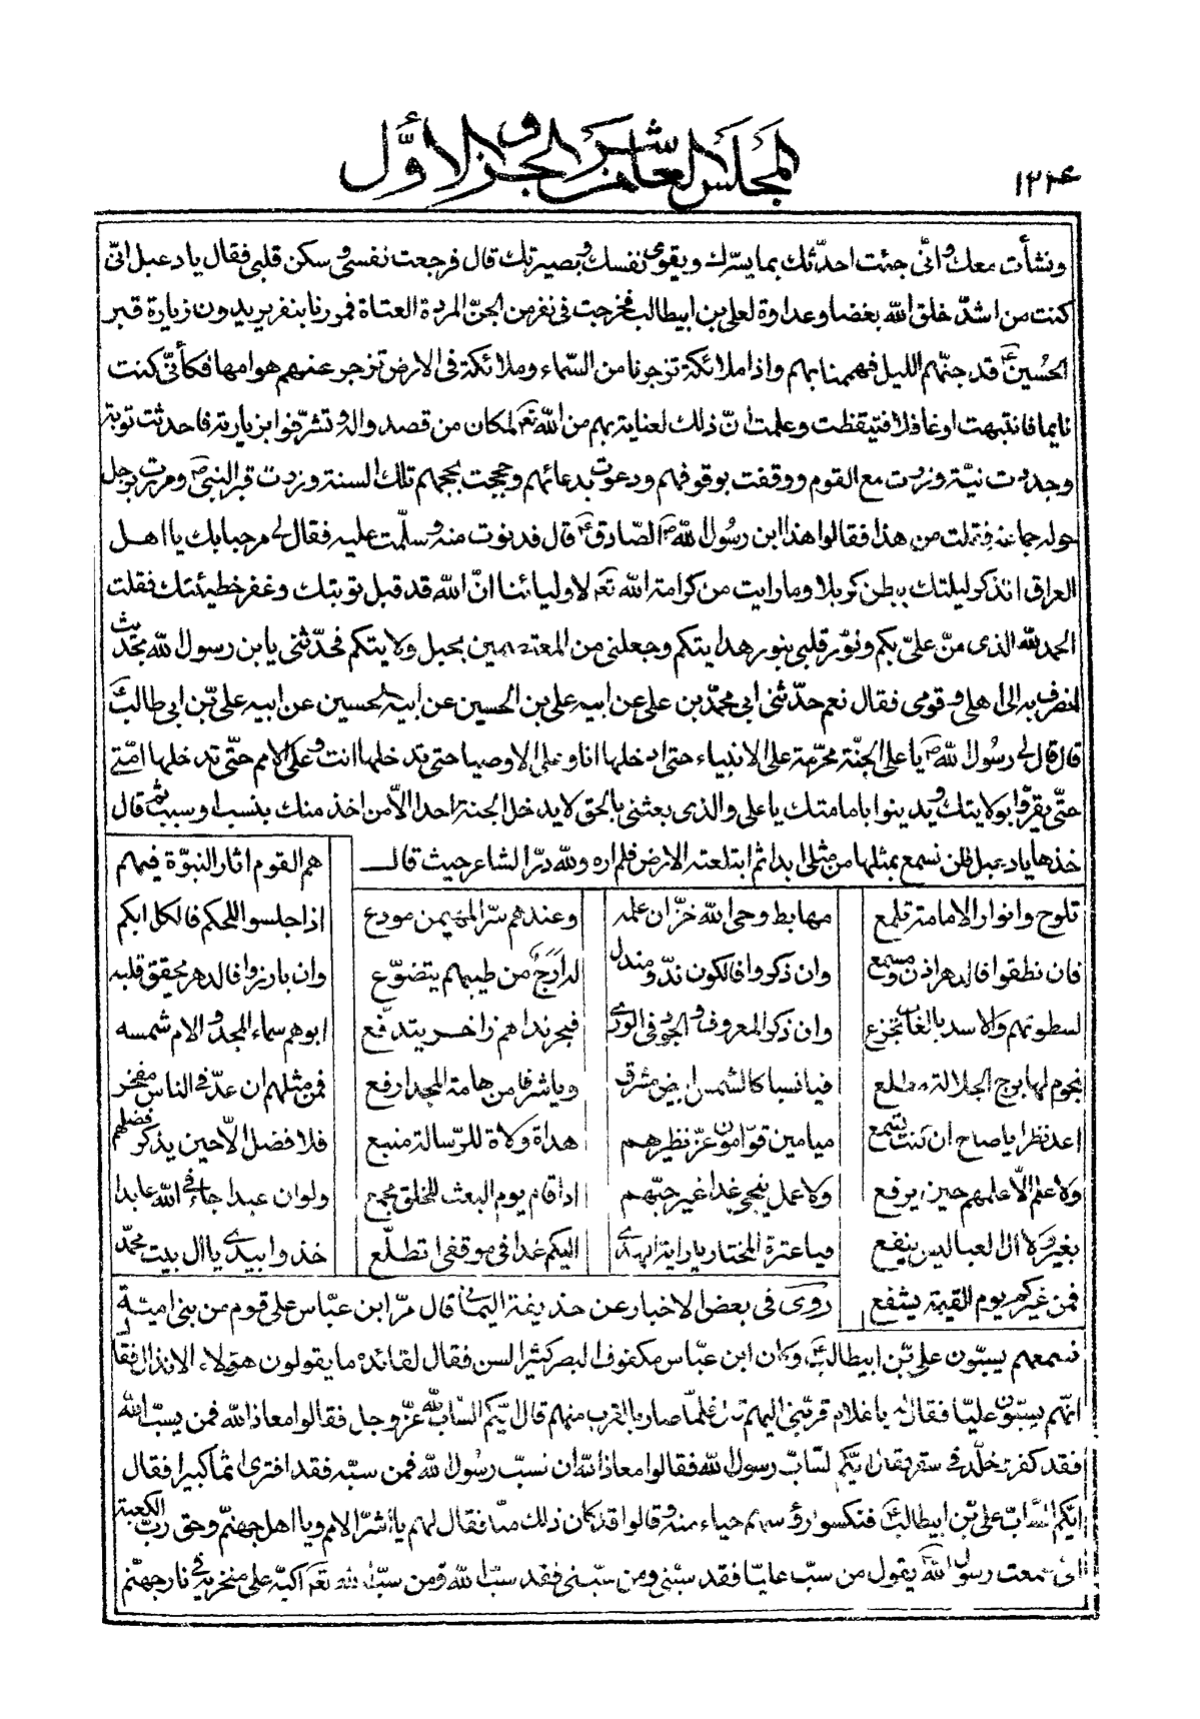 المجلس العاشر و الجزء الاوّل
١٢٤
ونشأت معك وانّي جئت احدّثك بما يسرّك ويقوى نفسك وبصيرتك قال فرجعت نفسي وسكن قلبي فقال يا دعبل انّي
كنت من اشدّ خلق الله بغضا وعداوة لعلي بن ابيطالب فخرجت في نفر من الجنّ المردة العتاة فمررنا بنفر يريدون زيارة قبر
الحسين ع قد جنّهم الليل فهممنا بهم واذا ملائكة تزجرنا من السّماء وملائكة في الارض تزجر عنهم هوامها فكأنّي كنت
نايما فانتبهت او غافلا فتيقظت وعلمت انّ ذلك لعناية بهم من الله تع لمكان من قصدوا له وتشرّفوا بزيارته فاحدثت توبة
وجددت نيّة وزرت مع القوم ووقفت بوقوفهم ودعوت بدعائهم وحججت بحجهم تلك السنة وزرت قبر النبي ص ومررت برجل
حوله جماعة فقلت من هذا فقالوا هذا ابن رسول الله ص الصّادق ع قال فدنوت منه وسلّمت عليه فقال لي مرحبا بك يا اهل
العراق اتذكر ليلتك ببطن كربلا وما رايت من كرامة الله تع لاوليائنا انّ الله قد قبل توبتك وغفر خطيئتك فقلت
الحمد لله الذي منّ عليّ بكم ونوّر قلبي بنور هدايتكم وجعلني من المعتصمين بحبل ولايتكم فحدّثني يا بن رسول الله بحديث
انصرف به الى اهلي وقومي فقال نعم حدّثني ابي محمّد بن علي عن ابيه علي بن الحسين عن ابيه الحسين عن ابيه علي بن ابي طالب ع
قال قال لي رسول الله ص يا علي الجنّة محرّمة على الانبياء حتى ادخلها انا وعلى الاوصيا حتى تدخلها انت وعلى الامم حتّى تدخلها امّتي
حتّى يقرّوا بولايتك ويدينوا بامامتك يا علي والذي بعثني بالحق لا يدخل الجنة احد الّا من اخذ منك بنسب او سبب ثم قال
خذها يا دعبل فلن تسمع بمثلها من مثلي ابدا ثم ابتلعته الارض فلم اره ولله درّ الشاعر حيث قال
هم القوم اثار النبوّة فيهم
تلوح وانوار الامامة تلمع
مهابط وحي الله خزّان علمه
وعندهم سرّ المهيمن مودع
اذا جلسوا للحكم فالكل ابكم
فان نطقوا فالدهر اذن ومسمع
وان ذكروا فالكون ندّ ومندل
له ارج من طيبهم يتضوّع
وان بارزوا فالدهر يخفق قلبه
لسطوتهم والاسد بالغاب تجزع
وان ذكر المعروف والجود في الورى
فبحر نداهم زاخر يتدفّع
ابوهم سماء المجد والام شمسه
نجوم لها برج الجلالة مطلع
فيا نسبا كالشمس ابيض مشرق
ويا شرفا من هامة المجد ارفع
فمن مثلهم ان عدّ في الناس مفخر
اعد نظرا يا صاح ان كنت تسمع
ميامين قوّامون عزّ نظيرهم
هداة ولاة للرّسالة منبع
فلا فضل الّا حين يذكر فضلهم
ولا علم الّا علمهم حين يرفع
ولا عمل ينجي غدا غير حبّهم
اذا قام يوم البعث للخلق مجمع
ولو ان عبدا جاء في الله عابدا
بغير ولا ال العبا ليس ينفع
فيا عترة المختار يا راية الهدى
اليكم غدا في موقفي اتطلّع
خذوا بيدي يا ال بيت محمّد
فمن غيركم يوم القيمة يشفع
روي في بعض الاخبار عن حذيفة اليماني قال مرّ ابن عبّاس على قوم من بني اميّة
فسمعهم يسبّون علي بن ابيطالب ع وكان ابن عبّاس مكفوف البصر كثير السن فقال لقائده ما يقولون هؤلاء الانذال فقال
انّهم يسبّون عليّا فقال له يا غلام قربّني اليهم فلمّا صار بالقرب منهم قال ايّكم السّابّ لله عزّ وجل فقالوا معاذ الله فمن يسبّ الله
فقد كفر وتخلّد في سقر فقال ايّكم السّابّ رسول الله فقالوا معاذ الله ان نسبّ رسول الله فمن سبّه فقد افترى اثما كبيرا فقال
ايّكم السّابّ علي بن ابيطالب ع فنكسوا رؤسهم حياء منه وقالوا قد كان ذلك منّا فقال لهم يا اشرّ الامم ويا اهل جهنّم وحق ربّ الكعبة
انّي سمعت رسول الله ص يقول من سبّ عليّا فقد سبّني ومن سبّني فقد سبّ الله ومن سبّ الله تع اكبّه على منخريه في نار جهنّم